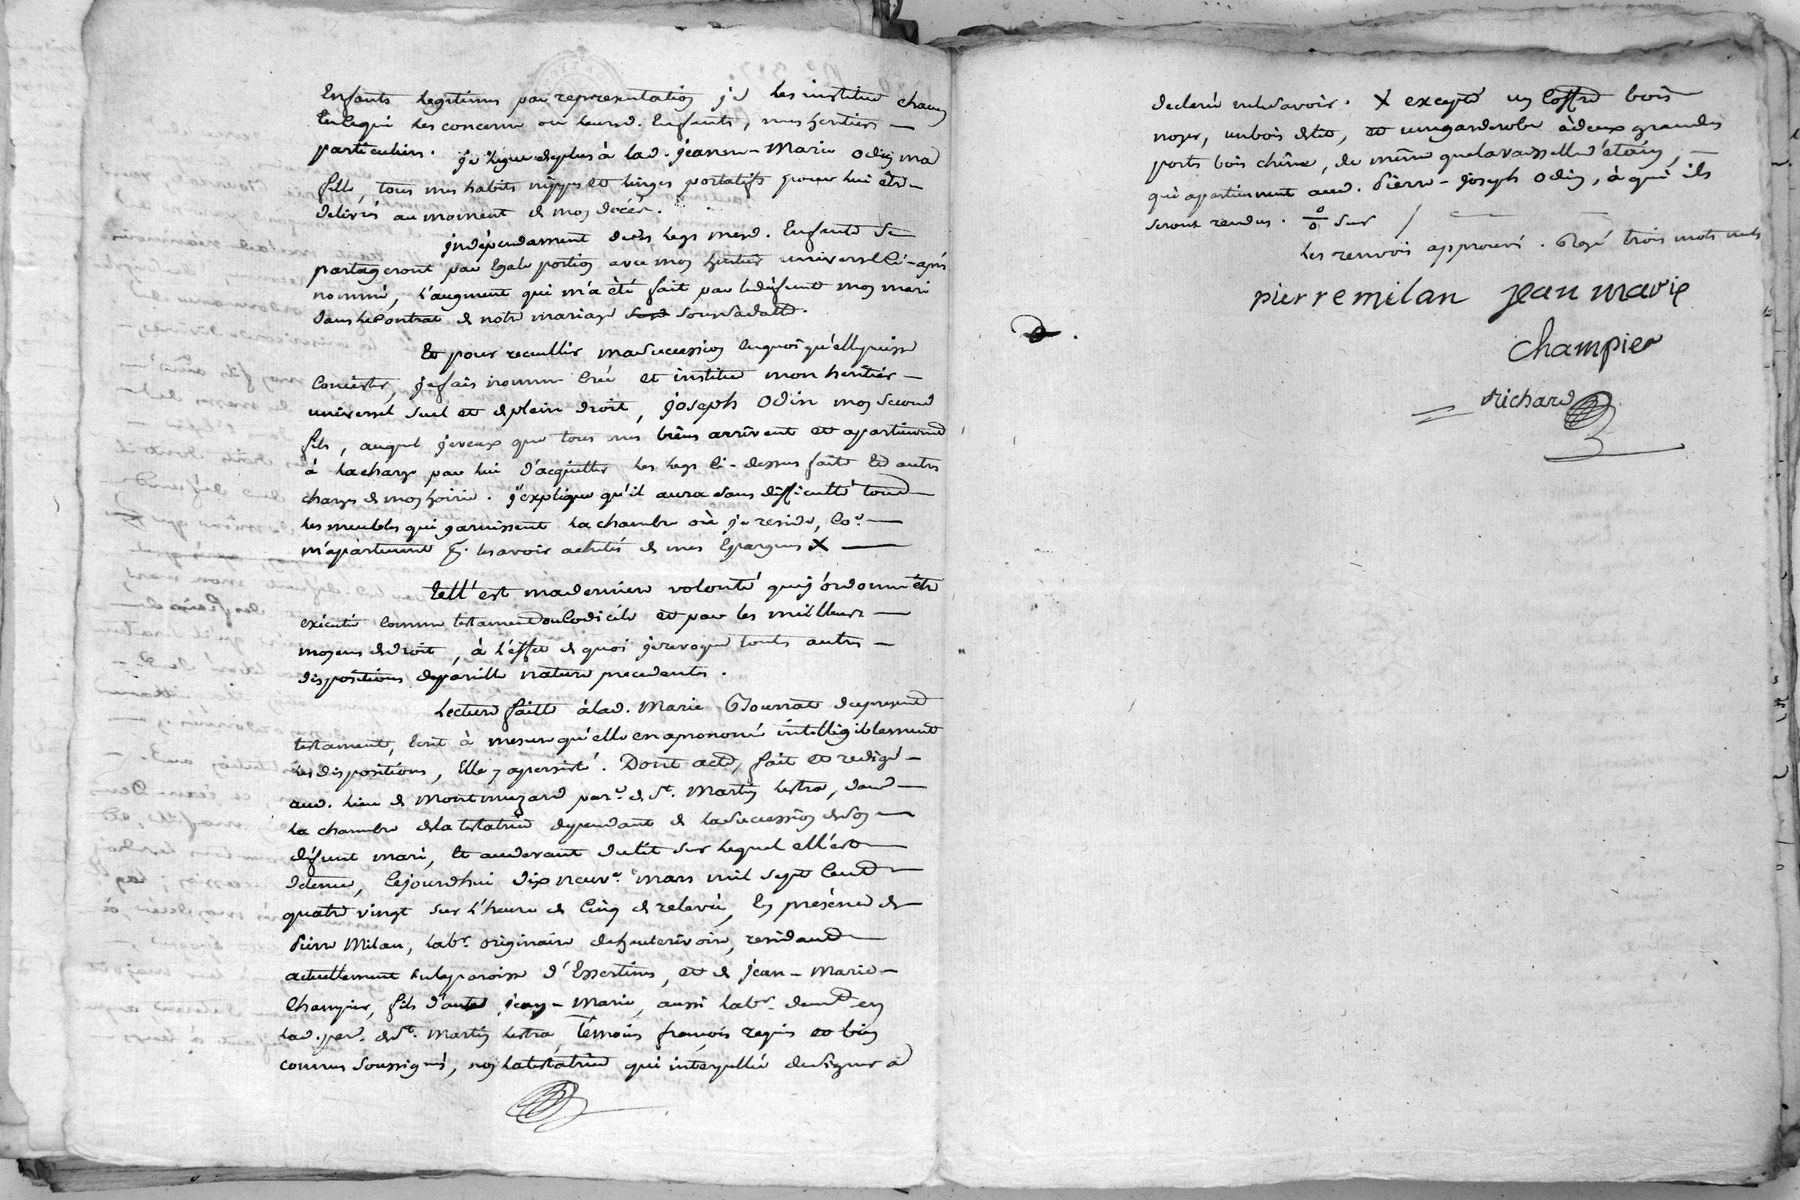 Enfants legitimes par representation je les institue chacun
en ce qui les concerne ou leursd. Enfants, mes heritiers
particuliers. je legue deplus à lad. jeanne-Marie odin ma
fille, tous mes habits nippes et linges portatifs pour lui être
delivrés au moment de mon décés.
jndépendament deces legs mesd. Enfants se
partageront par Egale portion avec mon heritier universel ci-après
nommé, l'augment qui m'a été fait par ledéfunt mon mari
dans le Contrat de notre mariage sous sa datte.
Et pour recuillir ma succession en quoi qu'elle puisse
Concister, je fais nomme Créé et institue mon heritier
universel seul et de plein droit, joseph Odin mon second
fils, auquel je veux que tous mes biens arrivent et apartiennent
à la charge par lui d'acquitter les legs ci-dessus faits Et autres
charges de mon hoirie. j'explique qu'il aura sans difficulté tous
les meubles qui garnissent la chambre où je reside, Co.e
m'apartenent p. les avoir achetés de mes Epargnes X
Tell'est ma derniere volonté que j'ordonne être
exécutée Comme testament ou Codicile et par les meilleurs
moyens de droit, à l'effet de quoi je revoque touts autres
dispositions de pareille nature precedentes.
Lecture faitte à lad. Marie Journat du present
testament, Ecrit à mesure qu'elle en a prononcé intelligiblement
les dispositions, Elle y a persisté. Dont acte, fait et redigé
aud. lieu de Montmuzard par.e de St. Martin lestra, dans
la chambre de la testatrice dependant de la succession de son
défunt mari, Et au devant du lit sur lequel ell'est
detenue, Cejourdhui dix neuv.e mars mil sept Cent
quatre vingt sur l'heure de Cinq de relevée, En présence de
Pierre Milan, lab.r originaire de hauterivoire, residant
actuellement en la paroisse d'Essertines, et de jean-Marie
Champier, fils d'autre jean-Marie, aussi lab.r demt. en
lad. par.e de St. Martin lestra, Temoins françois regnic. et bien
connus soussignés, non la testatrice qui interpellée de signer a
declaré ne le savoir. X excepté un Coffre bois
noyer, un bois de lit, et une garderobe à deux grandes
ports bois chêne, de même que la vaisselle d'étain,
qui apartiennent aud. Pierre-joseph Odin, à qui ils
seront rendus. sur
les renvois approuvé. Rayé trois mots nuls
pierre milan jean marie
Champier
Richard